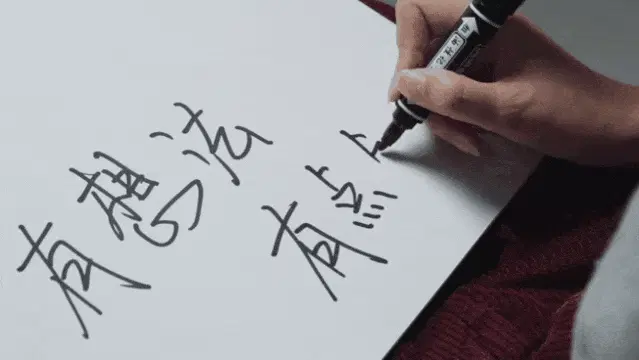 有想法
有点